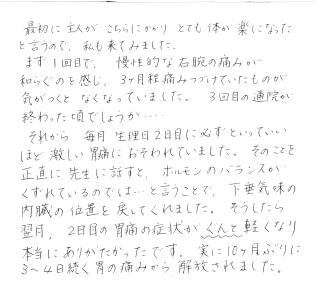 最初に主人がこちらにかかり とても体が楽になった
と言うので、私も来てみました。
まず1回目で、慢性的な右腕の痛みが
和らぐのを感じ、3ヶ月程痛みつづけていたものが
気がつくと なくなっていました。3回目の通院が
終わった頃でしょうか‥‥
それから 毎月 生理日2日目に必ずといっていい
ほど 激しい胃痛におそわれていました。そのことを
正直に先生に話すと、ホルモンのバランスが
くずれているのでは…と言うことで、下垂気味の
内臓の位置を戻してくれました。そうしたら
翌月、2日目の胃痛の症状が ぐんと軽くなり
本当にありがたかったです。実に10ヶ月ぶりに
3〜4日続く胃の痛みから 解放されました。